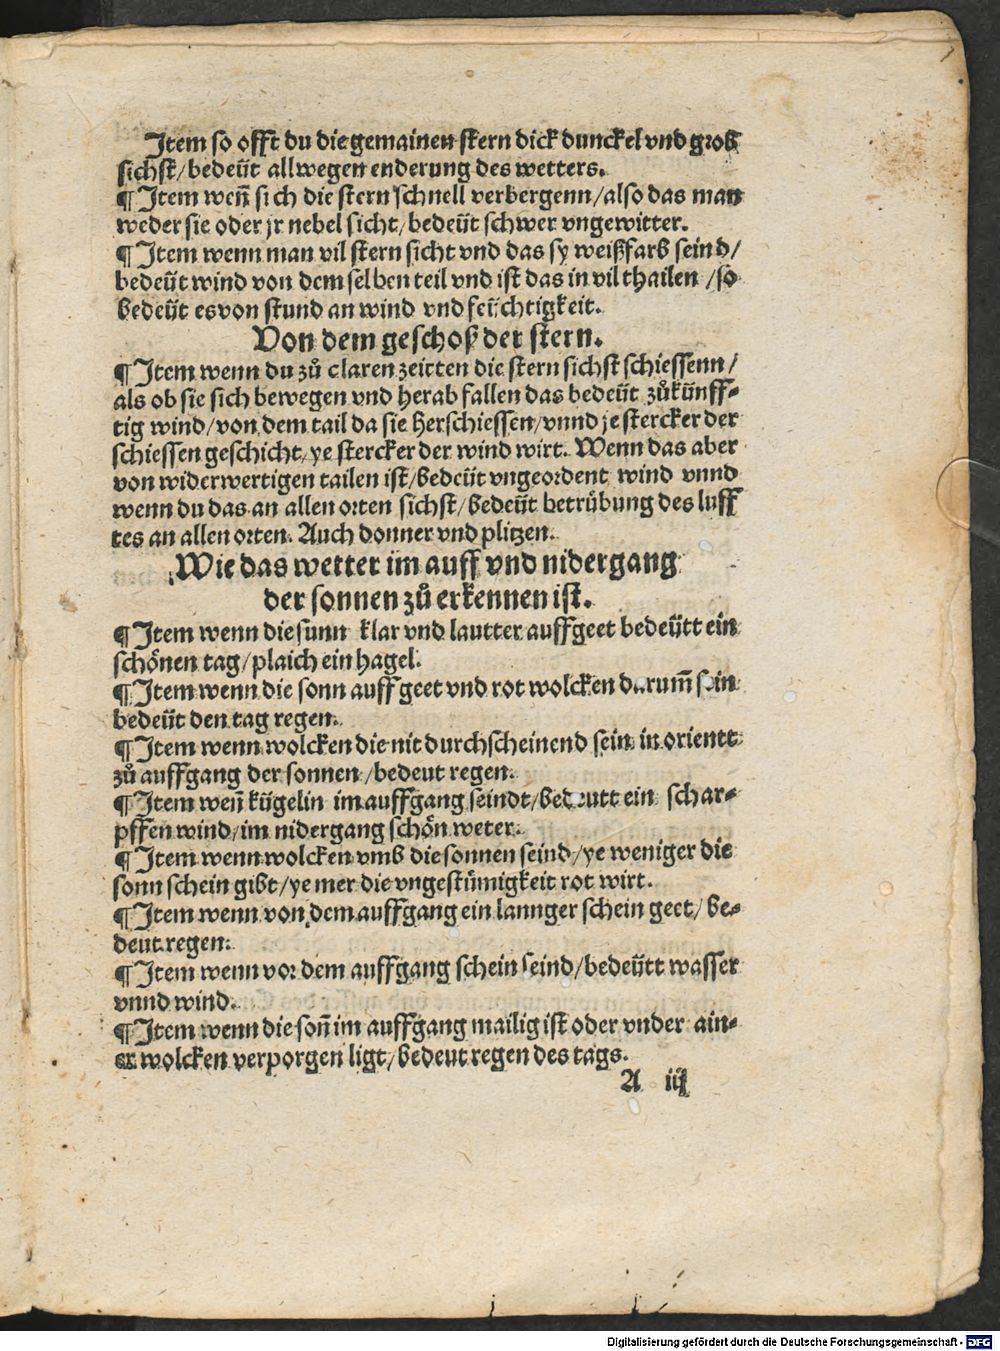 Item so offt du die gemainen stern dick dunckel vnd grob
sichst/ bedeüt allwegen enderung des wetters.
¶ Item weñ sich die stern schnell verbergenn/ also das man
weder sie oder jr nebel sicht/ bedeüt schwer vngewitter.
¶ Item wenn man vil stern sicht vnd das sy weißfarb seind/
bedeüt wind von dem selben teil vnd ist das in vil thailen /so
bedeüt es von stund an wind vnd feüchtigkeit.
Von dem geschoß der stern.
¶ Item wenn du zů claren zeitten die stern sichst schiessenn/
als ob sie sich bewegen vnd herab fallen das bedeüt zůkünff⸗
tig wind/ von dem tail da sie herschiessen/ vnnd je stercker der
schiessen geschicht/ ye stercker der wind wirt. Wenn das aber
von widerwertigen tailen ist/ bedeüt vngeordent wind vnnd
wenn du das an allen orten sichst/ bedeüt betrübung des luff
tes an allen orten. Auch donner vnd plitzen.
Wie das wetter im auff vnd nidergang
der sonnen zů erkennen ist.
¶ Item wenn die sunn klar vnd lautter auffgeet bedeütt ein
schönen tag/ plaich ein hagel.
¶ Item wenn die sonn auff geet vnd rot wolcken darum̃ sein
bedeüt den tag regen.
¶ Item wenn wolcken die nit durchscheinend sein in orientt
zů auffgang der sonnen /bedeut regen.
¶ Item weñ kügelin im auffgang seindt/ bedeutt ein schar⸗
pffen wind/ im nidergang schön weter.
¶ Item wenn wolcken vmb die sonnen seind/ ye weniger die
sonn schein gibt/ ye mer die vngestümigkeit rot wirt.
¶ Item wenn von dem auffgang ein lannger schein geet/ be⸗
deut regen.
¶ Item wenn vor dem auffgang schein seind/ bedeütt wasser
vnnd wind.
¶ Item wenn die soñ im auffgang mailig ist oder vnder ain⸗
er wolcken verporgen ligt/ bedeut regen des tags.
A iij
Digitalisierung gefördert durch die Deutsche Forschungsgemeinschaft - DFG